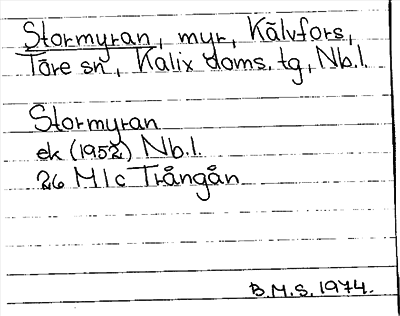 Stormyran, myr, Kälvfors,
Töre sn, Kalix doms. tg, Nb.l.
Stormyran
ek (1952) Nb.l.
26 M 1 c Trångån
B.M.S. 1974.